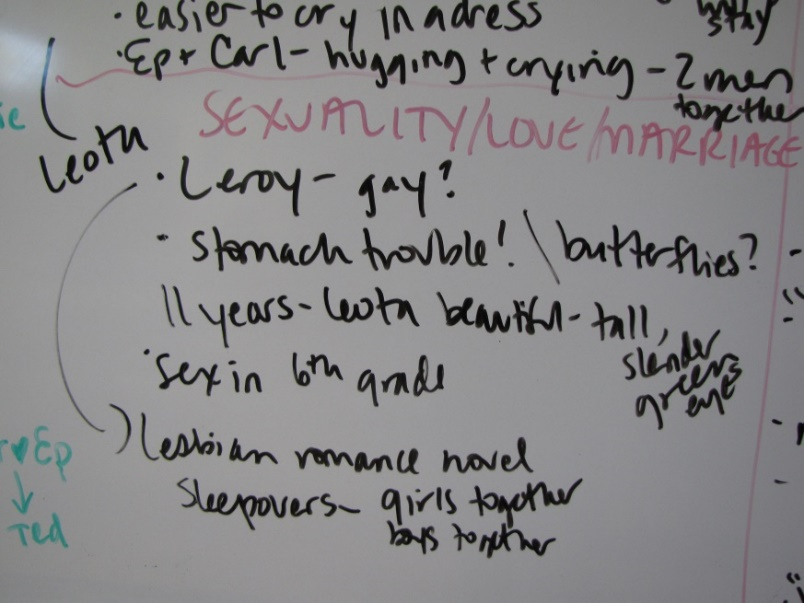 • easier to cry in a dress
stay
• Ep + Carl - hugging + crying - 2 men
together
SEXUALITY/LOVE/MARRIAGE
Leota
• Leroy - gay?
• stomach trouble! \ butterflies?
11 years - Leota beautiful - tall,
slender
green
eyes
• sex in 6th grade
) lesbian romance novel
♥ Ep
↓
Ted
sleepovers - girls together
boys together